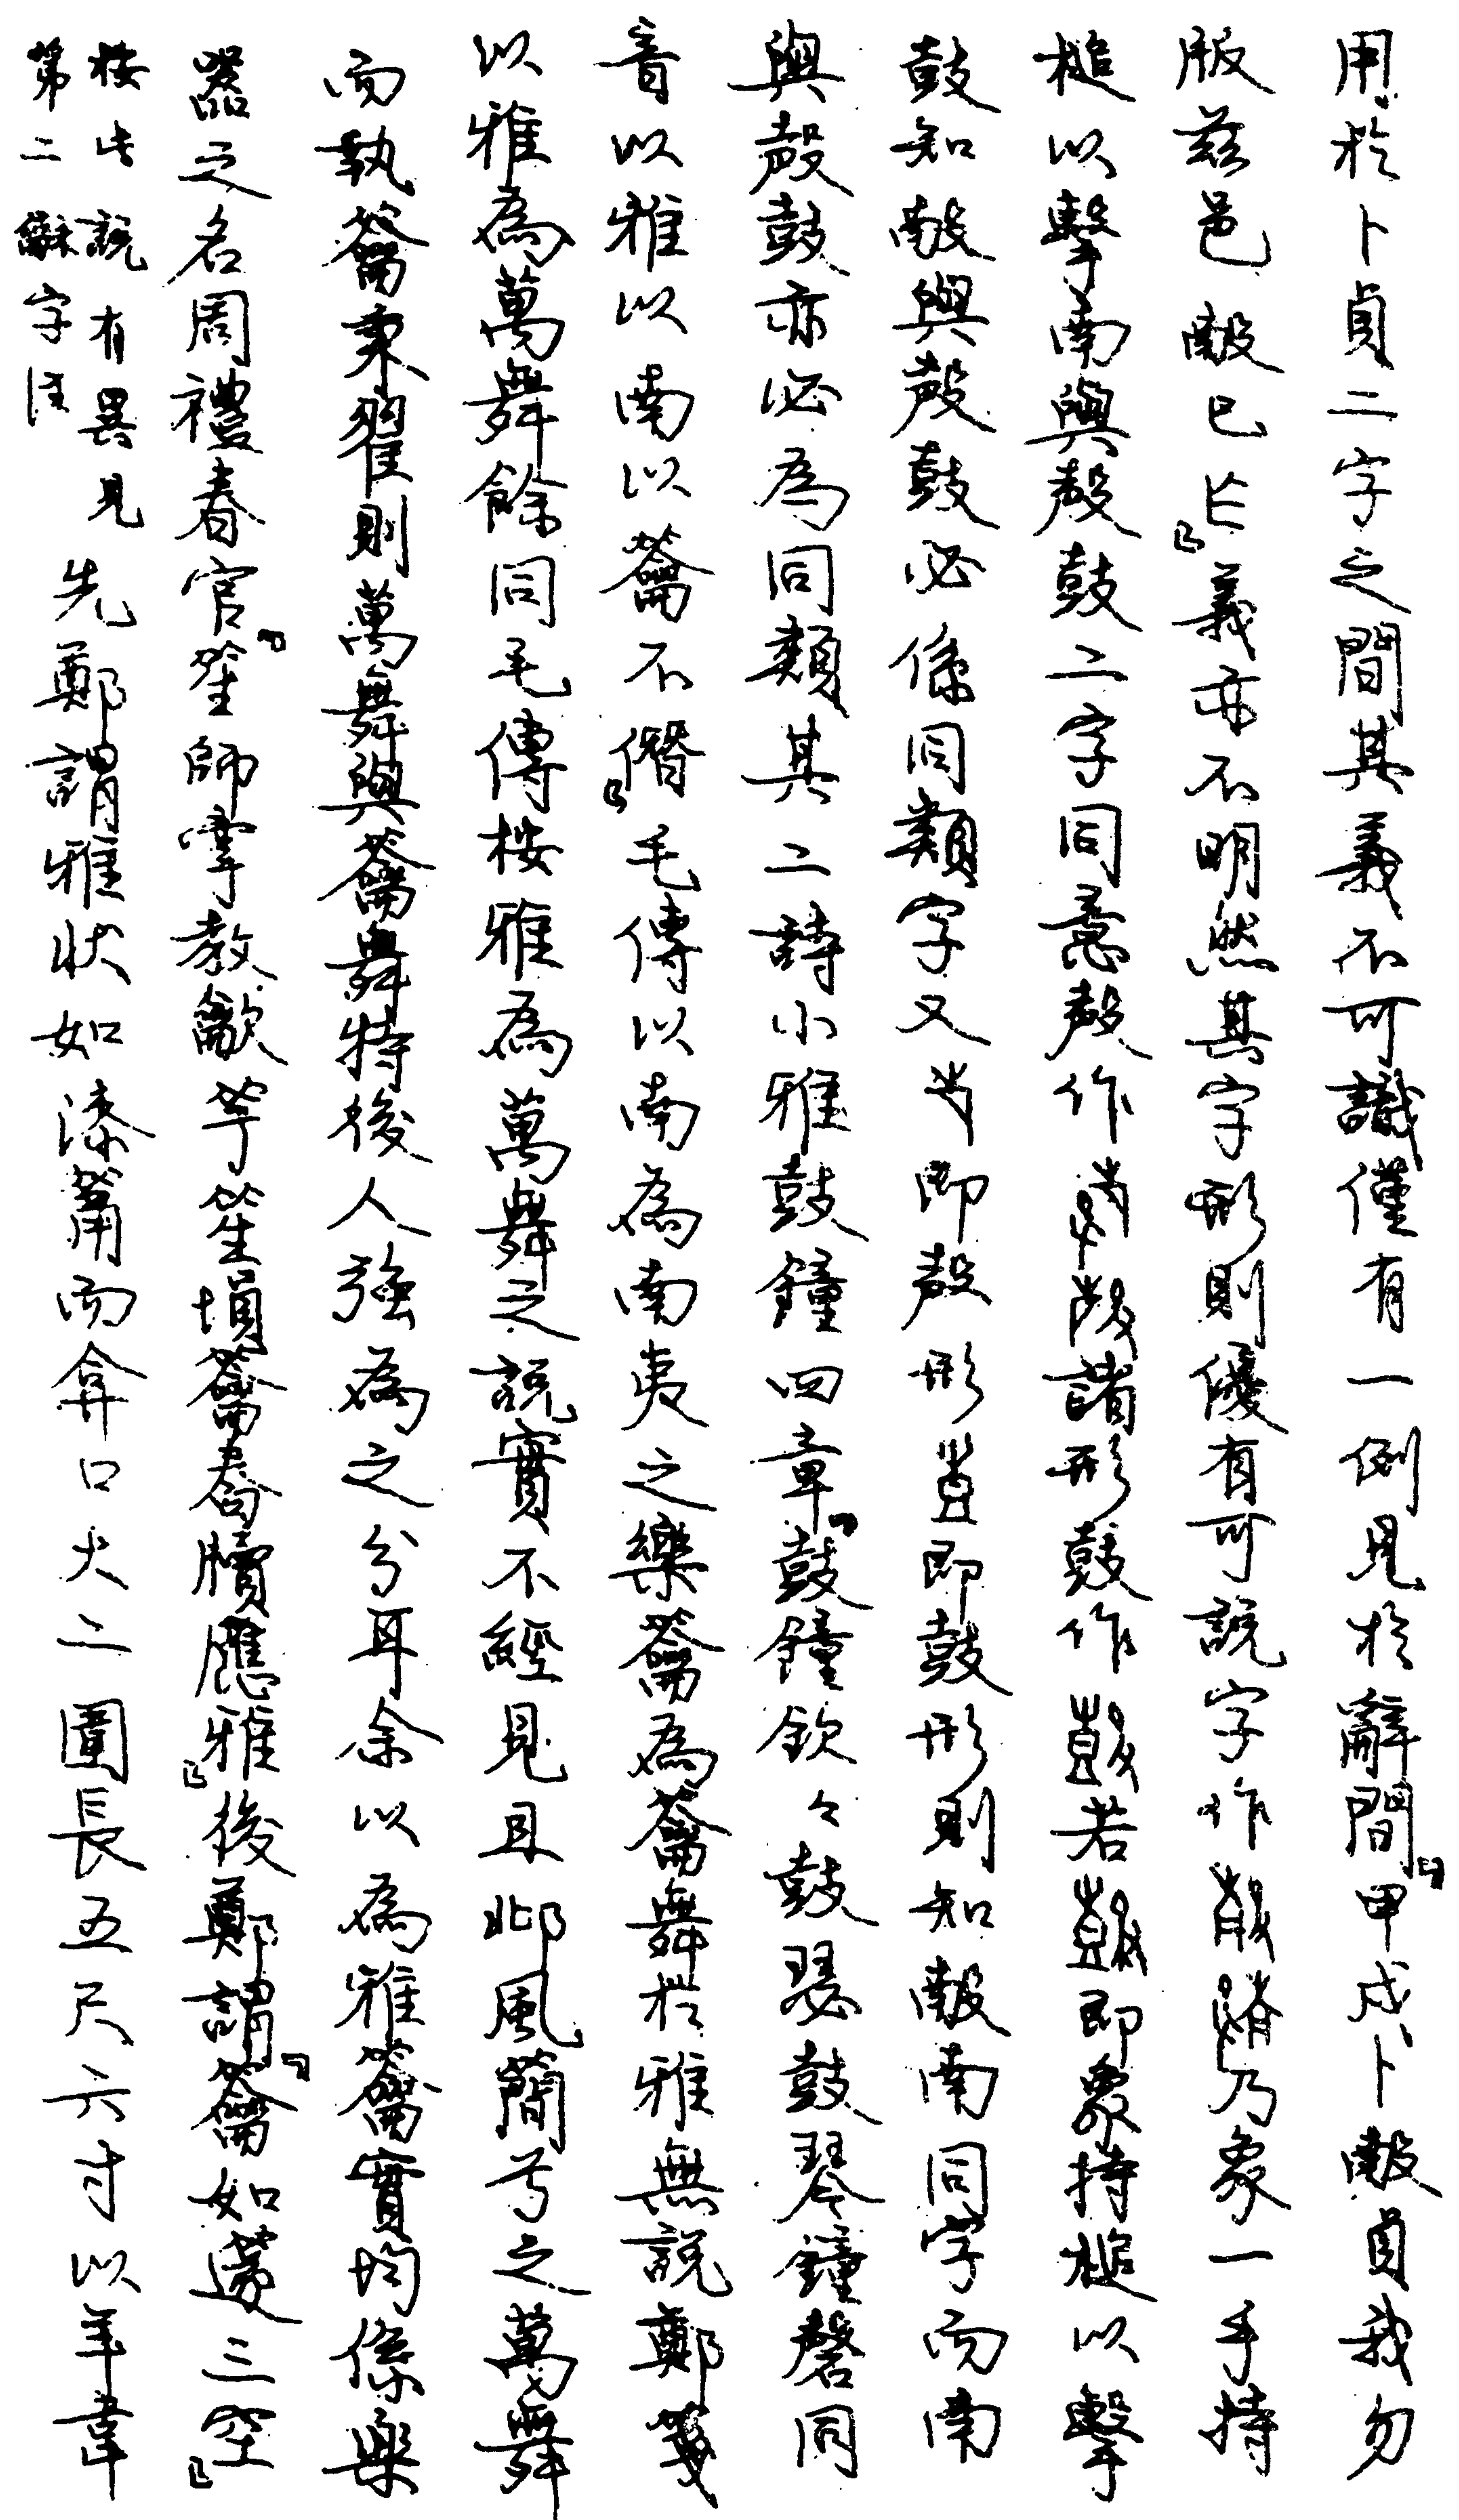 用於卜貞二字之間其義不可識僅有一例見於辭間『甲戌卜㱿貞我勿
㱿兹邑㱿已乍』義亦不明然其字形則優有可說字作乃象一手持
槌以擊南與殸鼓二字同意殸作諸形鼓作若即象持槌以擊
鼓知㱿與殸鼓必係同類字又即殸形壴即鼓形則知㱿南同字而南
與殸鼓亦必為同類其二詩小雅鼓鐘四章『鼓鐘欽々鼓瑟鼓琴鐘磬同
音以雅以南以籥不僭』毛傳以南為南夷之樂籥為籥舞於雅無說鄭箋
以雅為萬舞餘同毛傳按雅為萬舞之說實不經見且邶風簡兮之萬舞
而執籥秉翟則萬舞與籥舞特後人強為之分耳余以為雅籥實均係樂
器之名周禮春官『笙師掌教龡竽笙塤籥舂牘應雅』後鄭謂『籥如篴三空』
按此說有異見
第二龢字注
先鄭謂雅狀如漆筩而弇口大二圍長五尺六寸以羊韋